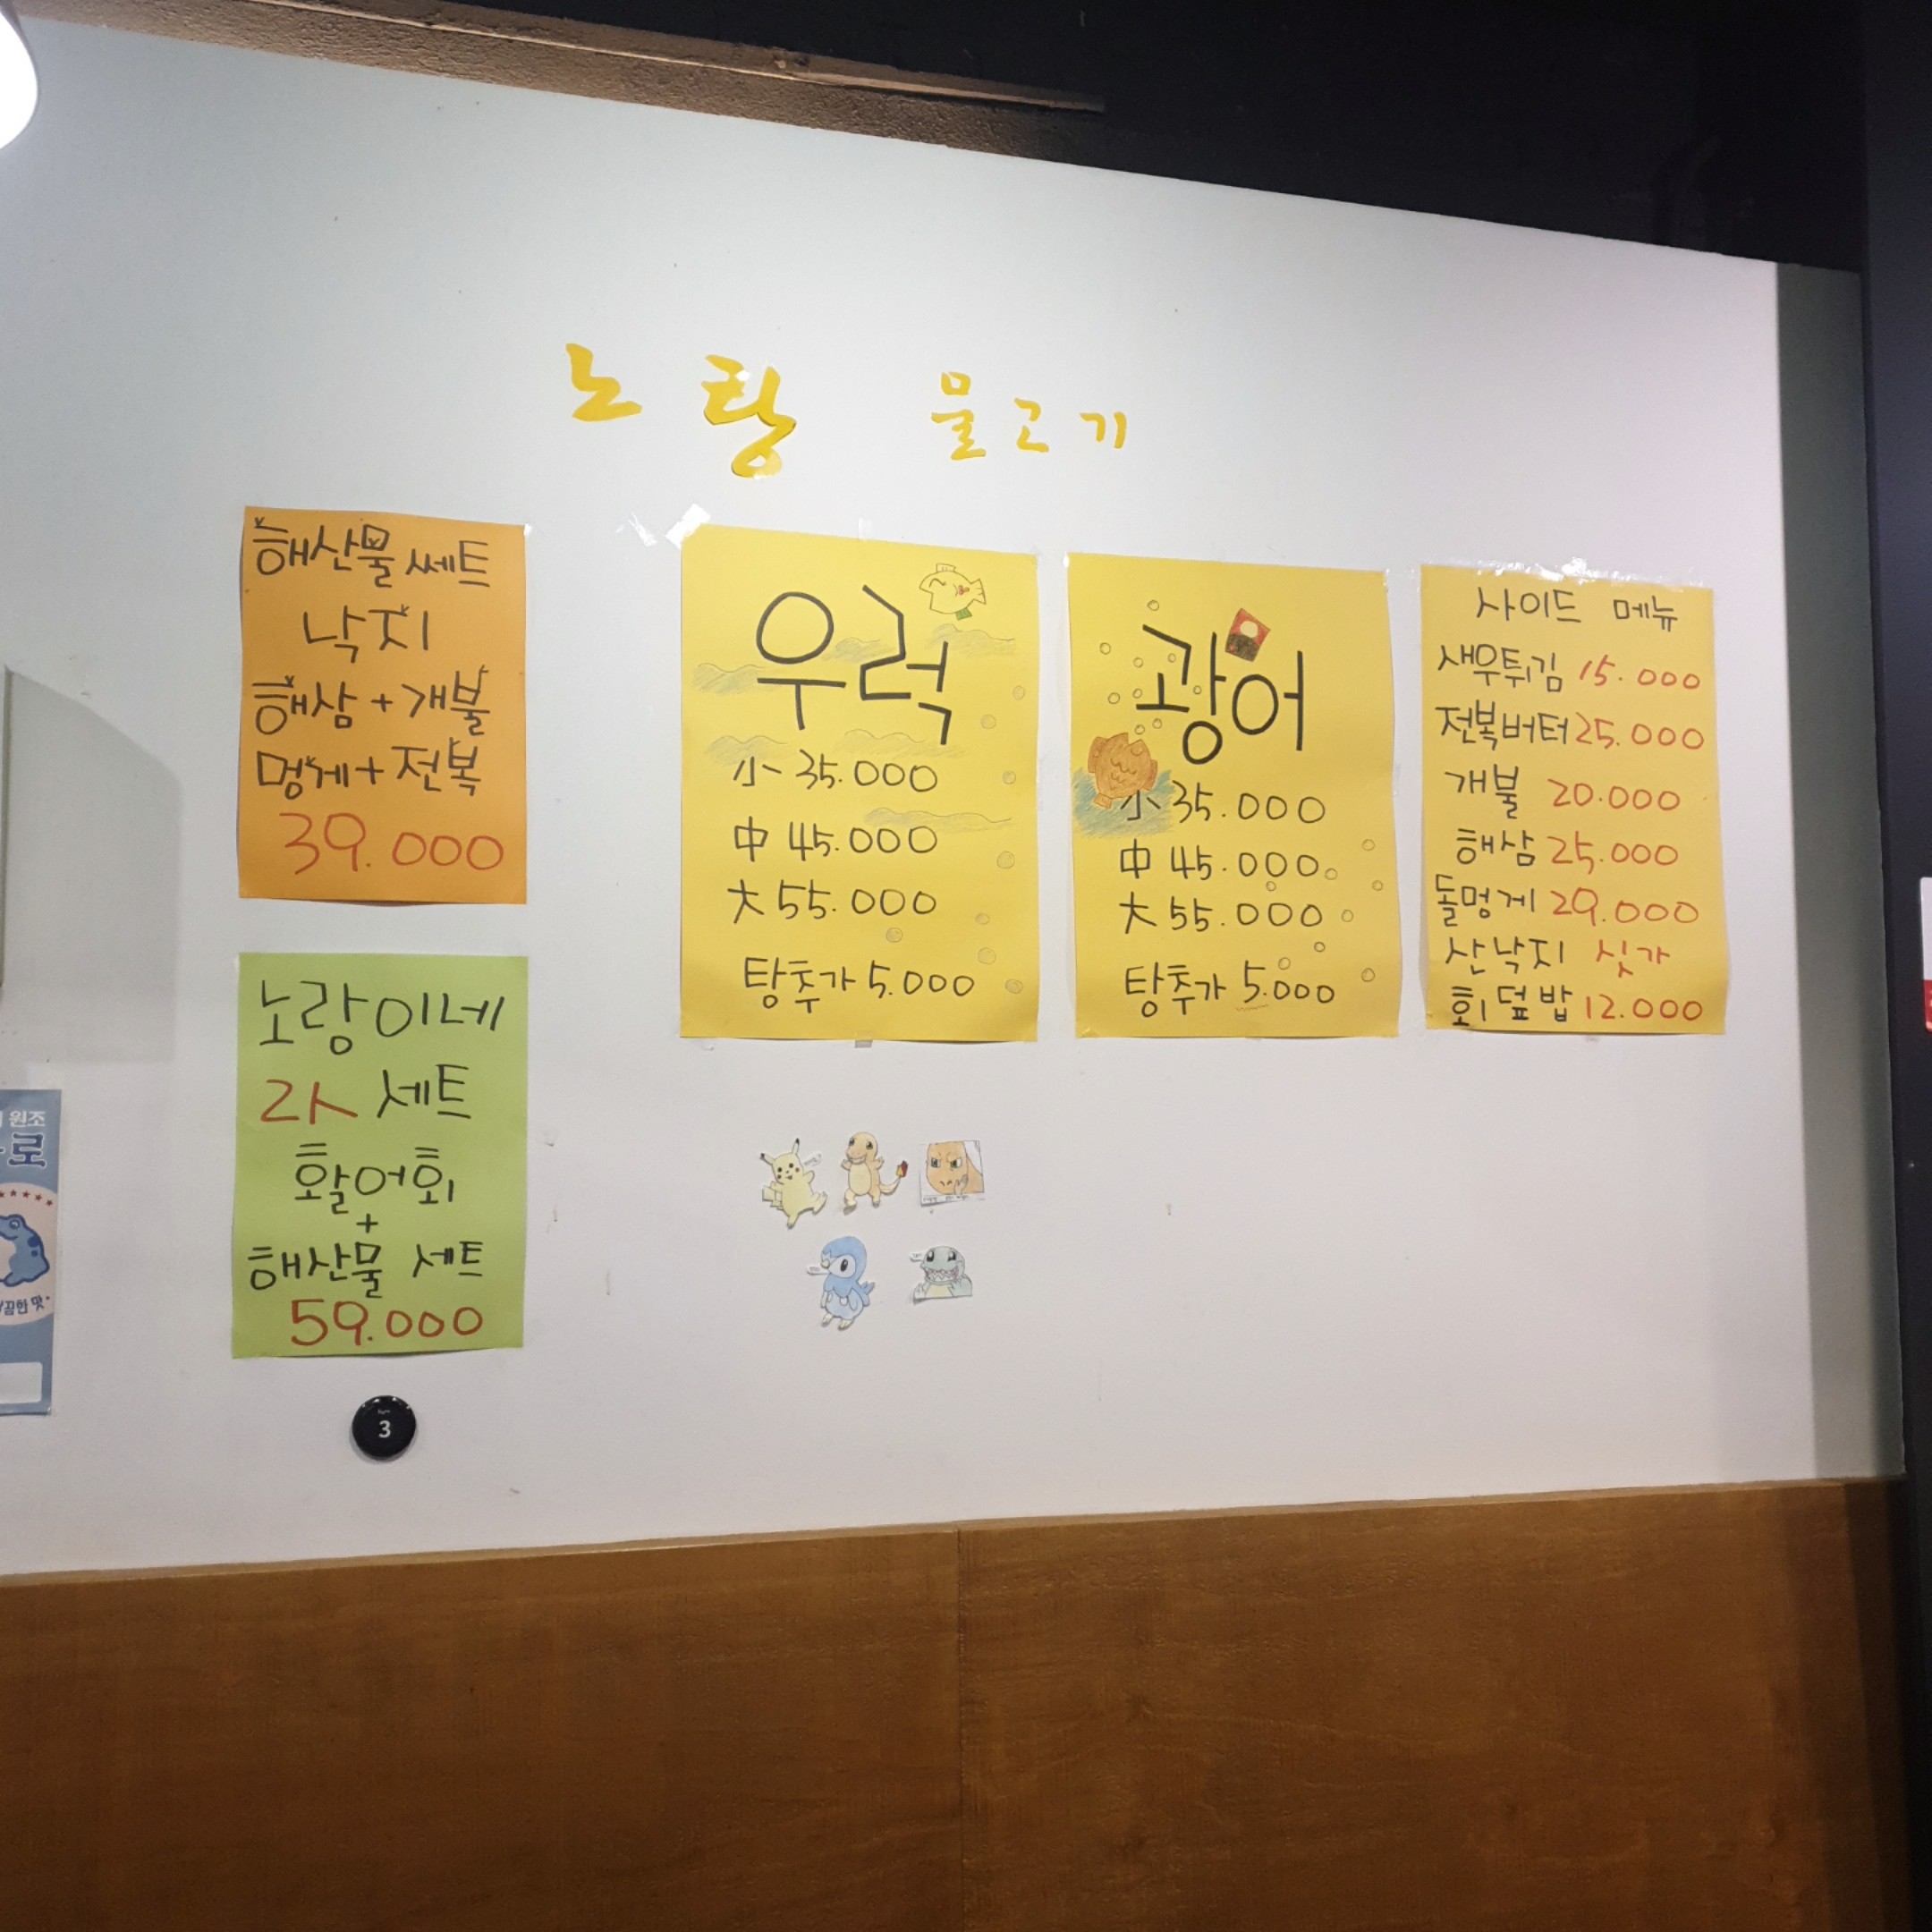 노탕 물고기
해산물쎄트
낙지
해삼+개불
멍게+전복
39.000
노랑이네
2人 세트
활어회
+
해산물 세트
59.000
3
우럭
小 35.000
中 45.000
大 55.000
탕추가 5.000
광어
小 35.000
中 45.000
大 55.000
탕추가 5.000
사이드 메뉴
새우튀김 15.000
전복버터 25.000
개불 20.000
해삼 25.000
돌멍게 29.000
산낙지 싯가
회덮밥 12.000
원조
로
끔한 맛